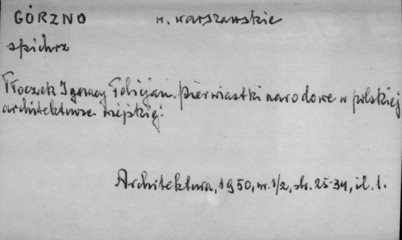 GÓRZNO w. warszawskie
spichrz
Tłoczek Ignacy Felicjan. Pierwiastki narodowe w polskiej
architekturze wiejskiej.
Architektura, 1950, nr. 1/2, str. 25-34, il. 1.